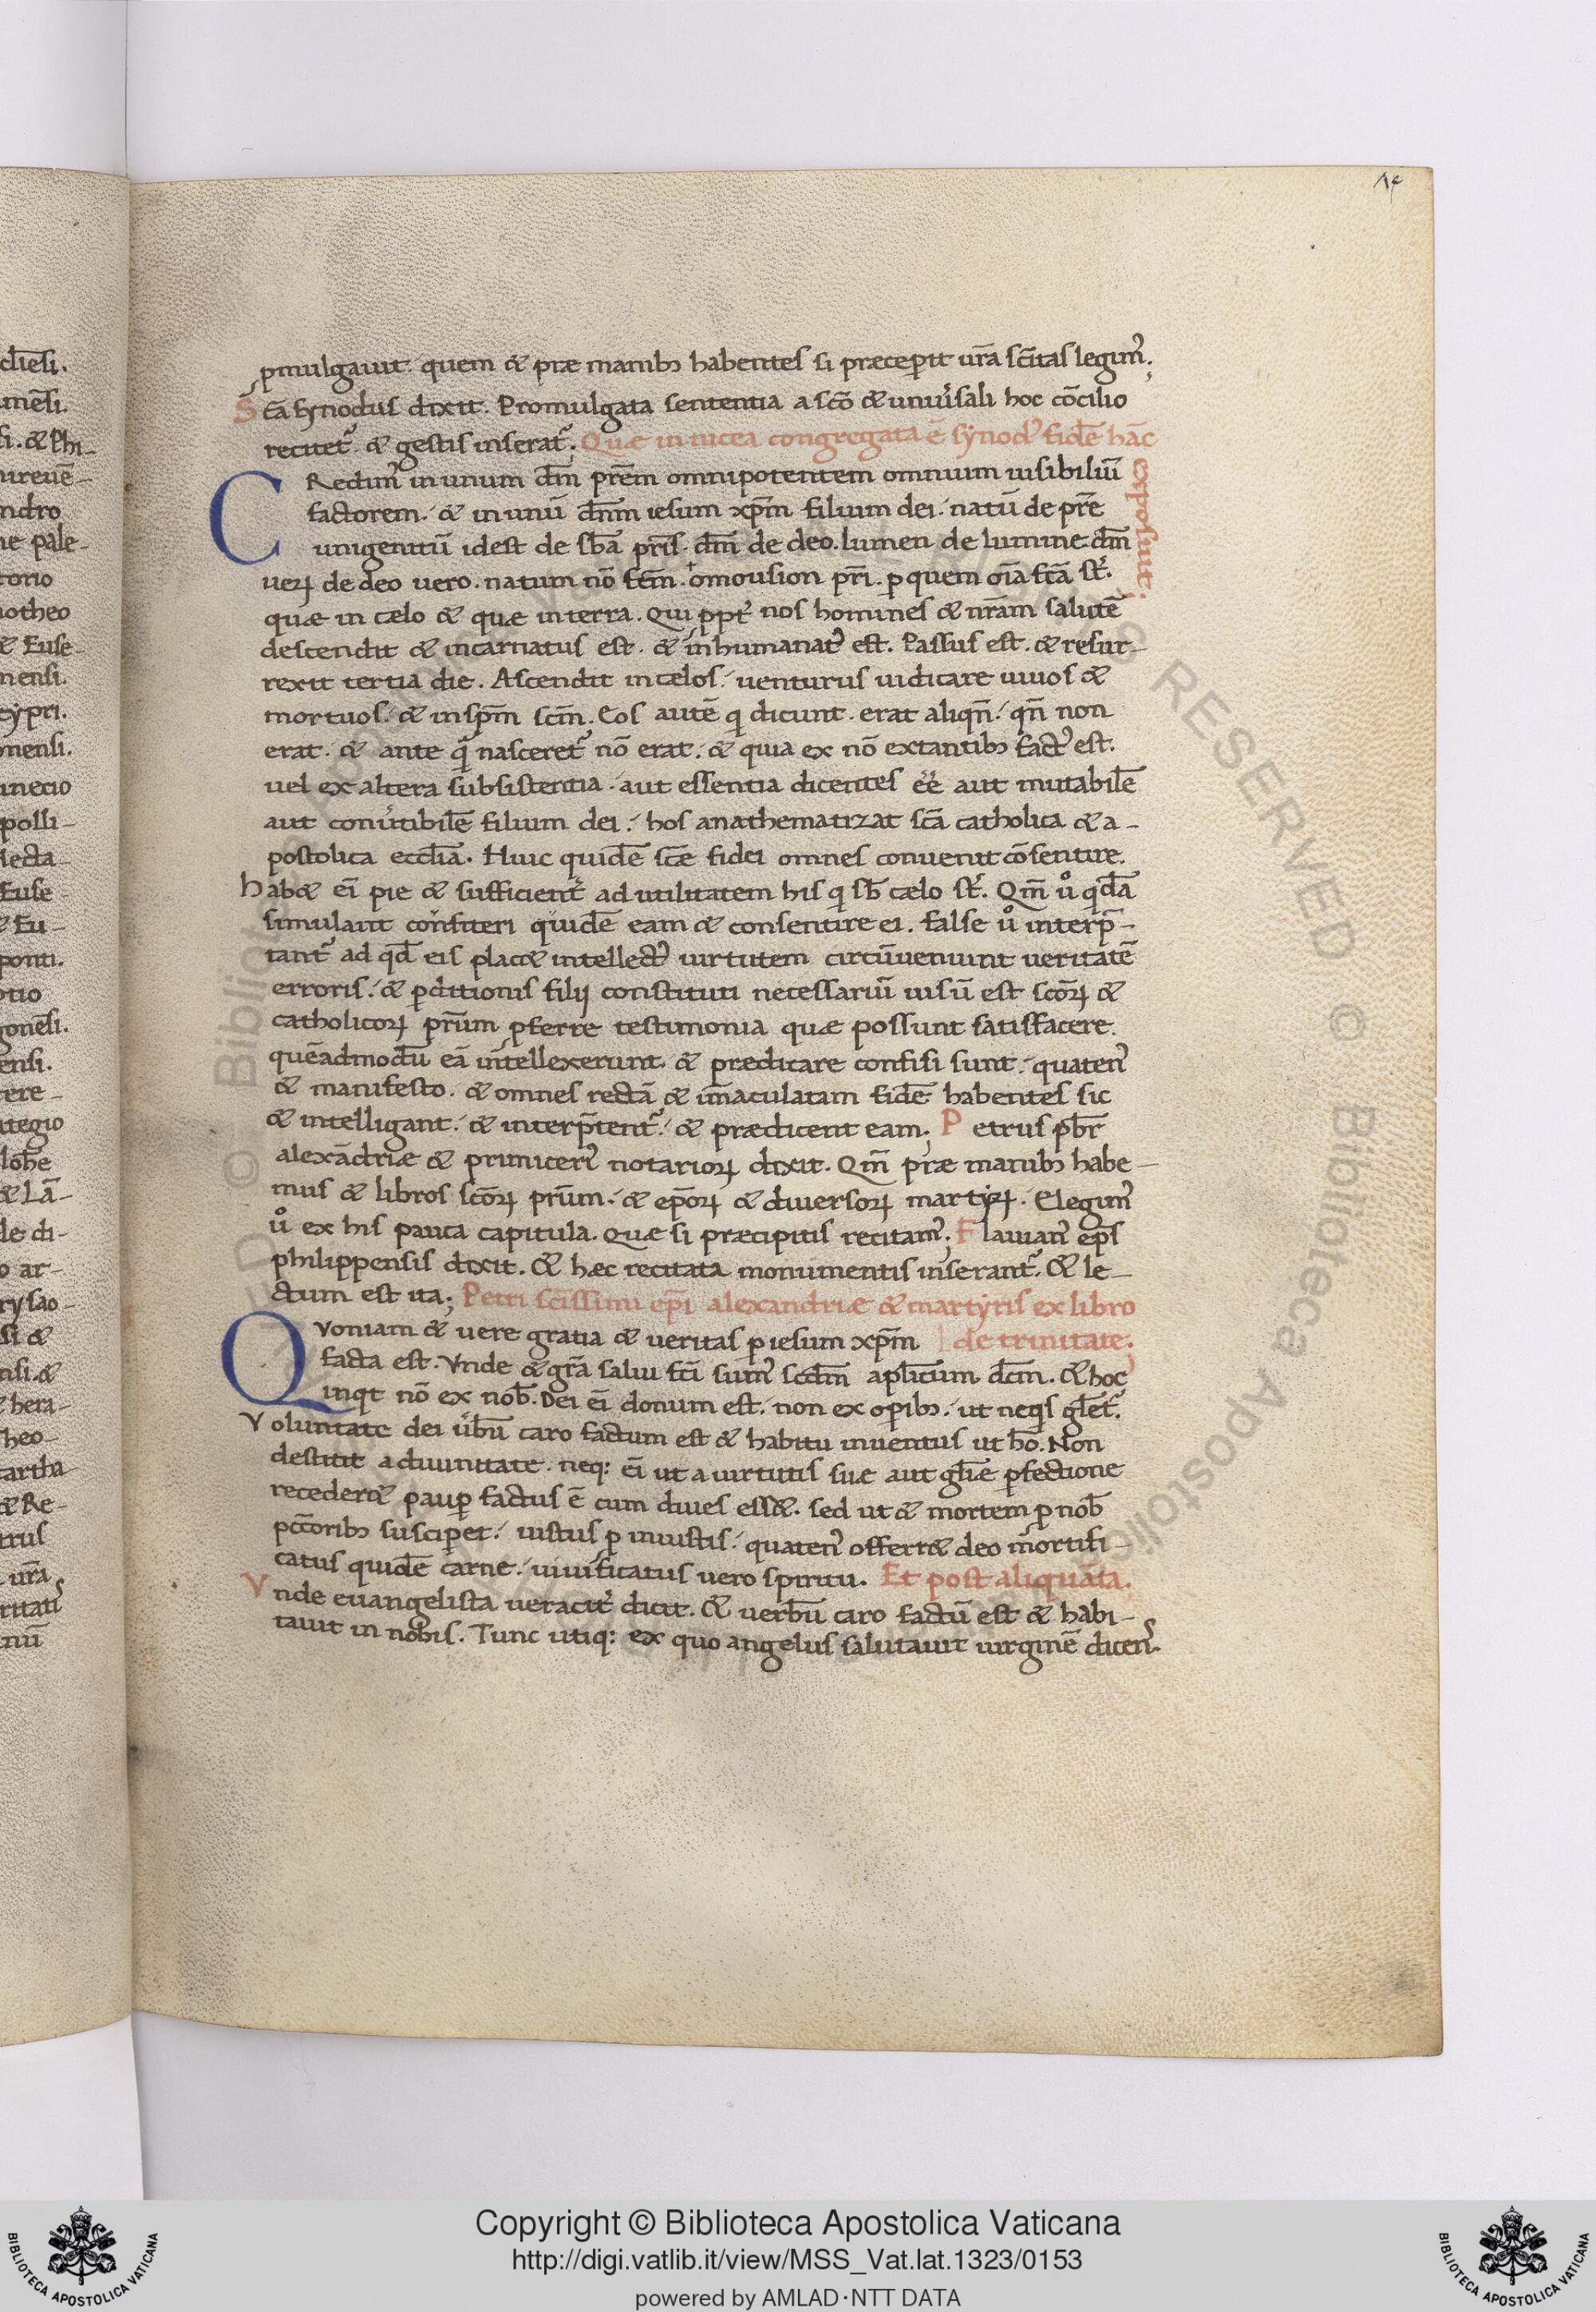 14
ꝓmulgauit. quem & præ manibꝫ habentes si præceperit ur̄a sc̄itas legim᾽;
Sc̄a synodus dixit. Promulgata sententia a sc̄o & uniũsali hoc cōcilio
recitet᾽ & gestis inserat᾽; Quæ in nicea congregata ē synod᾽ fidē hāc
exposuit.
CRedim᾽ in unum dm̄ prēm omnipotentem omnium uisibiliū
factorem. & in unū dnm̄ iesum xp̄m filium dei. natū de pr̄e
unigenitū idest de sb̄a pr̄is. dm̄ de deo. lumen de lumine. dm̄
uerꝝ de deo uero. natum nō fc̄m. omousion pr̄i. ꝑ quem oīa fc̄a st̄.
quæ in cælo & quæ in terra. Qui ꝓpt᾽ nos homines & nr̄am salutē
descendit & incarnatus est. & inhumanat᾽ est. Passus est. & resur-
rexit tertia die. Ascendit in cælos. uenturus iudicare uiuos &
mortuos. & in spm̄ scm̄. Eos autē q̇ dicunt. erat aliqn̄. qn̄ non
erat. & ante q̄ nasceret᾽ nō erat. & quia ex nō extantibꝫ fact᾽ est.
uel ex altera subsistentia. aut essentia dicentes eē aut mutabilē
aut conũtibilē filium dei. hos anathematizat sc̄a catholica & a-
postolica eccl̄ia. Huic quidē sc̄æ fidei omnes conuenit cōsentire.
Hab& ei̅ pie & sufficient᾽ ad utilitatem his q̇ sb̄ cælo st̄. Qm̄ ů qdā
simulant confiteri quidē eam & consentire ei. false ů interp̄-
tant᾽ ad qd̄ eis plac& intellect᾽ uirtutem circūueniunt ueritatē
erroris. & ꝑditionis filij constituti necessariū uisū est scōrꝝ &
catholicorꝝ prūm ꝓferre testimonia quæ possunt satisfacere.
quēadmodū eā intellexerunt. & prædicare confisi sunt. quaten᾽
& manifesto. & omnes rectā & im̄aculatam fidē habentes sic
& intelligant. & interp̄tent᾽. & prædicent eam; Petrus pb̄r
alexādriæ & primiceri᾽ notariorꝝ dixit. Qm̄ præ manibꝫ habe-
mus & libros scōrꝝ prūm. & ep̄orꝝ & diuersorꝝ martyrꝝ. Elegim᾽
ů ex his pauca capitula. Quæ si præcipitis recitam᾽; Flauian᾽ ep̄s
philippensis dixit. & hæc recitata monumentis inserant᾽. & le-
ctum est ita; Petri sc̄issimi ep̄i alexandriæ & martyris ex libro
de trinitate.
QVoniam & vere gratia & ueritas ꝑ iesum xp̄m
facta est. Vnde & gr̄a salui fc̄i sum᾽ scdm̄ aplicum dcm̄. & hoc
inqt nō ex nob̄. Dei ei̅ donum est. non ex opibꝫ. ut neqis gl̄et᾽.
Voluntate dei u̅bū caro factum est & habitu inuentus ut hō. Non
destitit a diuinitate. neq: ei̅ ut a uirtutis suæ aut gl̄iæ ꝑfectione
receder& pauꝑ factus ē cum diues ess&. sed ut & mortem ꝓ nob̄
pcc̄oribꝫ susciperet. iustus ꝓ iniustis. quaten᾽ offerr& deo mortifi-
catus quidē carne. uiuificatus uero spiritu. Et post aliquāta.
Vnde euangelista ueracit᾽ dicit. & uerbū caro factū est & habi-
tauit in nobis. Tunc utiq: ex quo angelus salutauit uirginē dicens.
Copyright © Biblioteca Apostolica Vaticana
http://digi.vatlib.it/view/MSS_Vat.lat.1323/0153
powered by AMLAD·NTT DATA
BIBLIOTECA APOSTOLICA VATICANA
BIBLIOTECA APOSTOLICA VATICANA